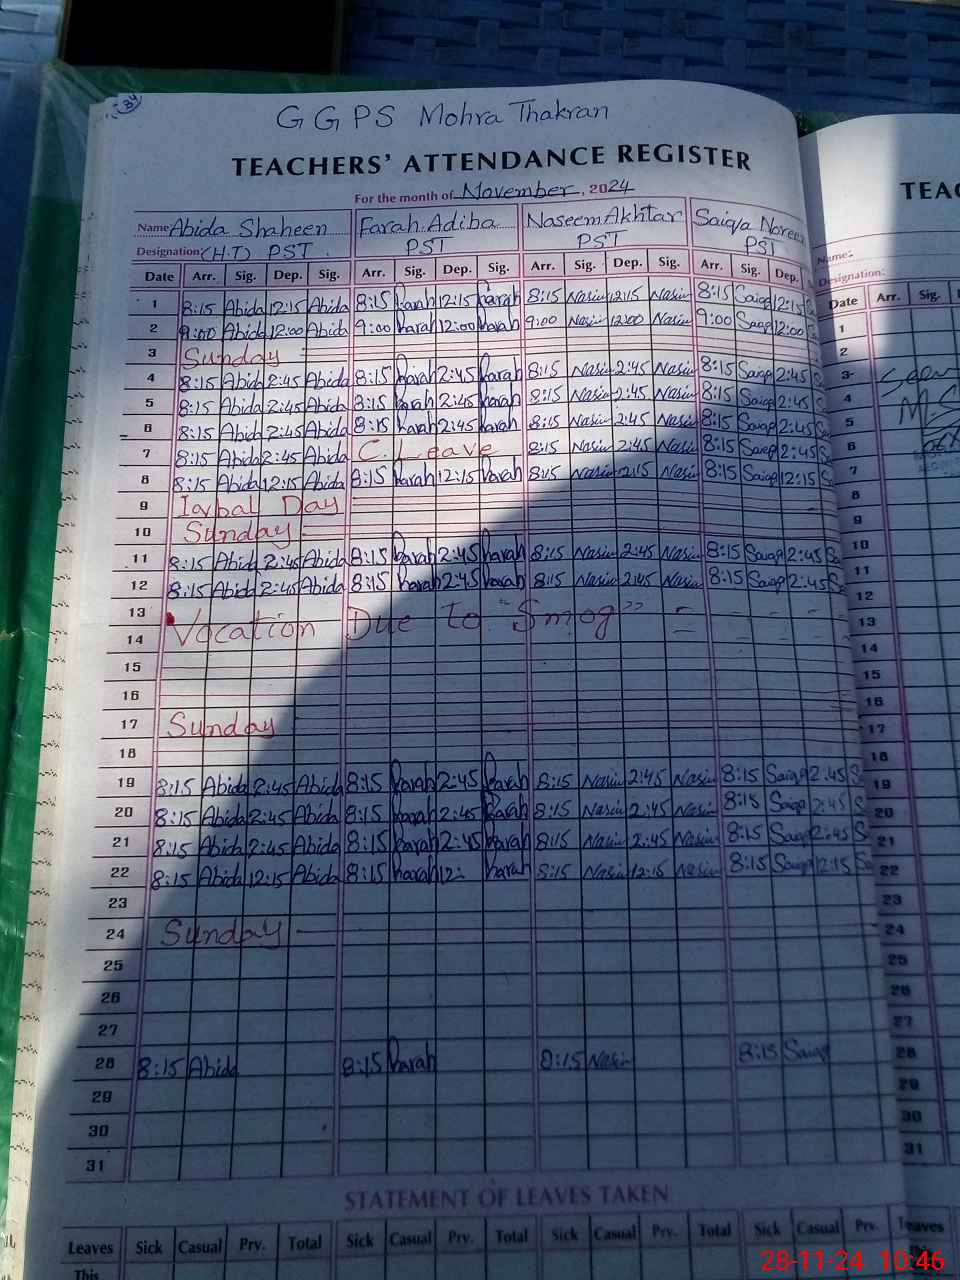 84
G G P S Mohra Thakran
TEACHERS' ATTENDANCE REGISTER
For the month of November, 2024
Name Abida Shaheen Farah Adiba Naseem Akhtar Saiqa Noreen
Designation: (H.T) PST PST PST PST
Date Arr. Sig. Dep. Sig. Arr. Sig. Dep. Sig. Arr. Sig. Dep. Sig. Arr. Sig. Dep.
1 8:15 Abida 12:15 Abida 8:15 Farah 12:15 Farah 8:15 Nasim 12:15 Nasim 8:15 Saiqa 12:15
2 9:00 Abida 12:00 Abida 9:00 Farah 12:00 Farah 9:00 Nasim 12:00 Nasim 9:00 Saiqa 12:00
3 Sunday
4 8:15 Abida 2:45 Abida 8:15 Farah 2:45 Farah 8:15 Nasim 2:45 Nasim 8:15 Saiqa 2:45
5 8:15 Abida 2:45 Abida 8:15 Farah 2:45 Farah 8:15 Nasim 2:45 Nasim 8:15 Saiqa 2:45
6 8:15 Abida 2:45 Abida 8:15 Farah 2:45 Farah 8:15 Nasim 2:45 Nasim 8:15 Saiqa 2:45
7 8:15 Abida 2:45 Abida C. Leave 8:15 Nasim 2:45 Nasim 8:15 Saiqa 2:45
8 8:15 Abida 12:15 Abida 8:15 Farah 12:15 Farah 8:15 Nasim 12:15 Nasim 8:15 Saiqa 12:15
9 Iqbal Day
10 Sunday
11 8:15 Abida 2:45 Abida 8:15 Farah 2:45 Farah 8:15 Nasim 2:45 Nasim 8:15 Saiqa 2:45
12 8:15 Abida 2:45 Abida 8:15 Farah 2:45 Farah 8:15 Nasim 2:45 Nasim 8:15 Saiqa 2:45
13
Vocation Due to "Smog"
14
15
16
17 Sunday
18
19 8:15 Abida 2:45 Abida 8:15 Farah 2:45 Farah 8:15 Nasim 2:45 Nasim 8:15 Saiqa 2:45
20 8:15 Abida 2:45 Abida 8:15 Farah 2:45 Farah 8:15 Nasim 2:45 Nasim 8:15 Saiqa 2:45
21 8:15 Abida 2:45 Abida 8:15 Farah 2:45 Farah 8:15 Nasim 2:45 Nasim 8:15 Saiqa 2:45
22 8:15 Abida 12:15 Abida 8:15 Farah 12: Farah 8:15 Nasim 12:15 Nasim 8:15 Saiqa 12:15
23
24 Sunday
25
26
27
28 8:15 Abida 8:15 Farah 8:15 Nasim 8:15 Saiqa
29
30
31
STATEMENT OF LEAVES TAKEN
Leaves Sick Casual Prv. Total Sick Casual Prv. Total Sick Casual Prv. Total Sick Casual Prv.
This
TEAC
Name:
Designation:
Date Arr. Sig.
1
2
3
4
5
6
7
8
9
10
11
12
13
14
15
16
17
18
19
20
21
22
23
24
25
26
27
28
29
30
31
Leaves
28-11-24 10:46